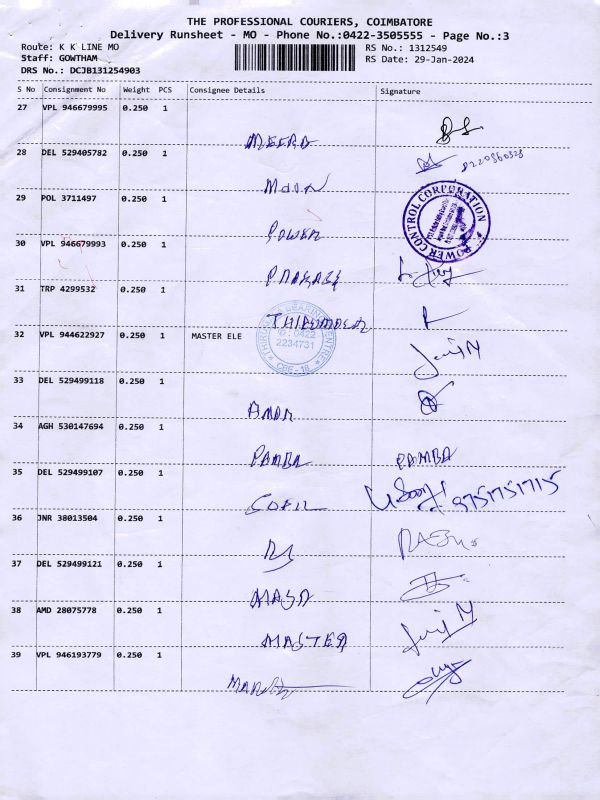 THE PROFESSIONAL COURIERS, COIMBATORE
Delivery Runsheet - MO - Phone No.:0422-3505555 - Page No.:3
Route: K K LINE MO
RS No.: 1312549
Staff: GOWTHAM
RS Date: 29-Jan-2024
DRS No.: DCJB131254903
S No Consignment No Weight PCS Consignee Details Signature
27 VPL 946679995 0.250 1
MEERA
28 DEL 529405782 0.250 1
Moon
29 POL 3711497 0.250 1
POWER
POWER CONTROL CORPORATION
30 VPL 946679993 0.250 1
31 TRP 4299532 0.250 1
32 VPL 944622927 0.250 1 MASTER ELE
BEARING CENTRE
0422
2234731
CBE - 18
33 DEL 529499118 0.250 1
34 AGH 530147694 0.250 1
PAMBA PAMBA
35 DEL 529499107 0.250 1
9751751715
36 JNR 38013504 0.250 1
37 DEL 529499121 0.250 1
MASA
38 AMD 28075778 0.250 1
MASTER
39 VPL 946193779 0.250 1